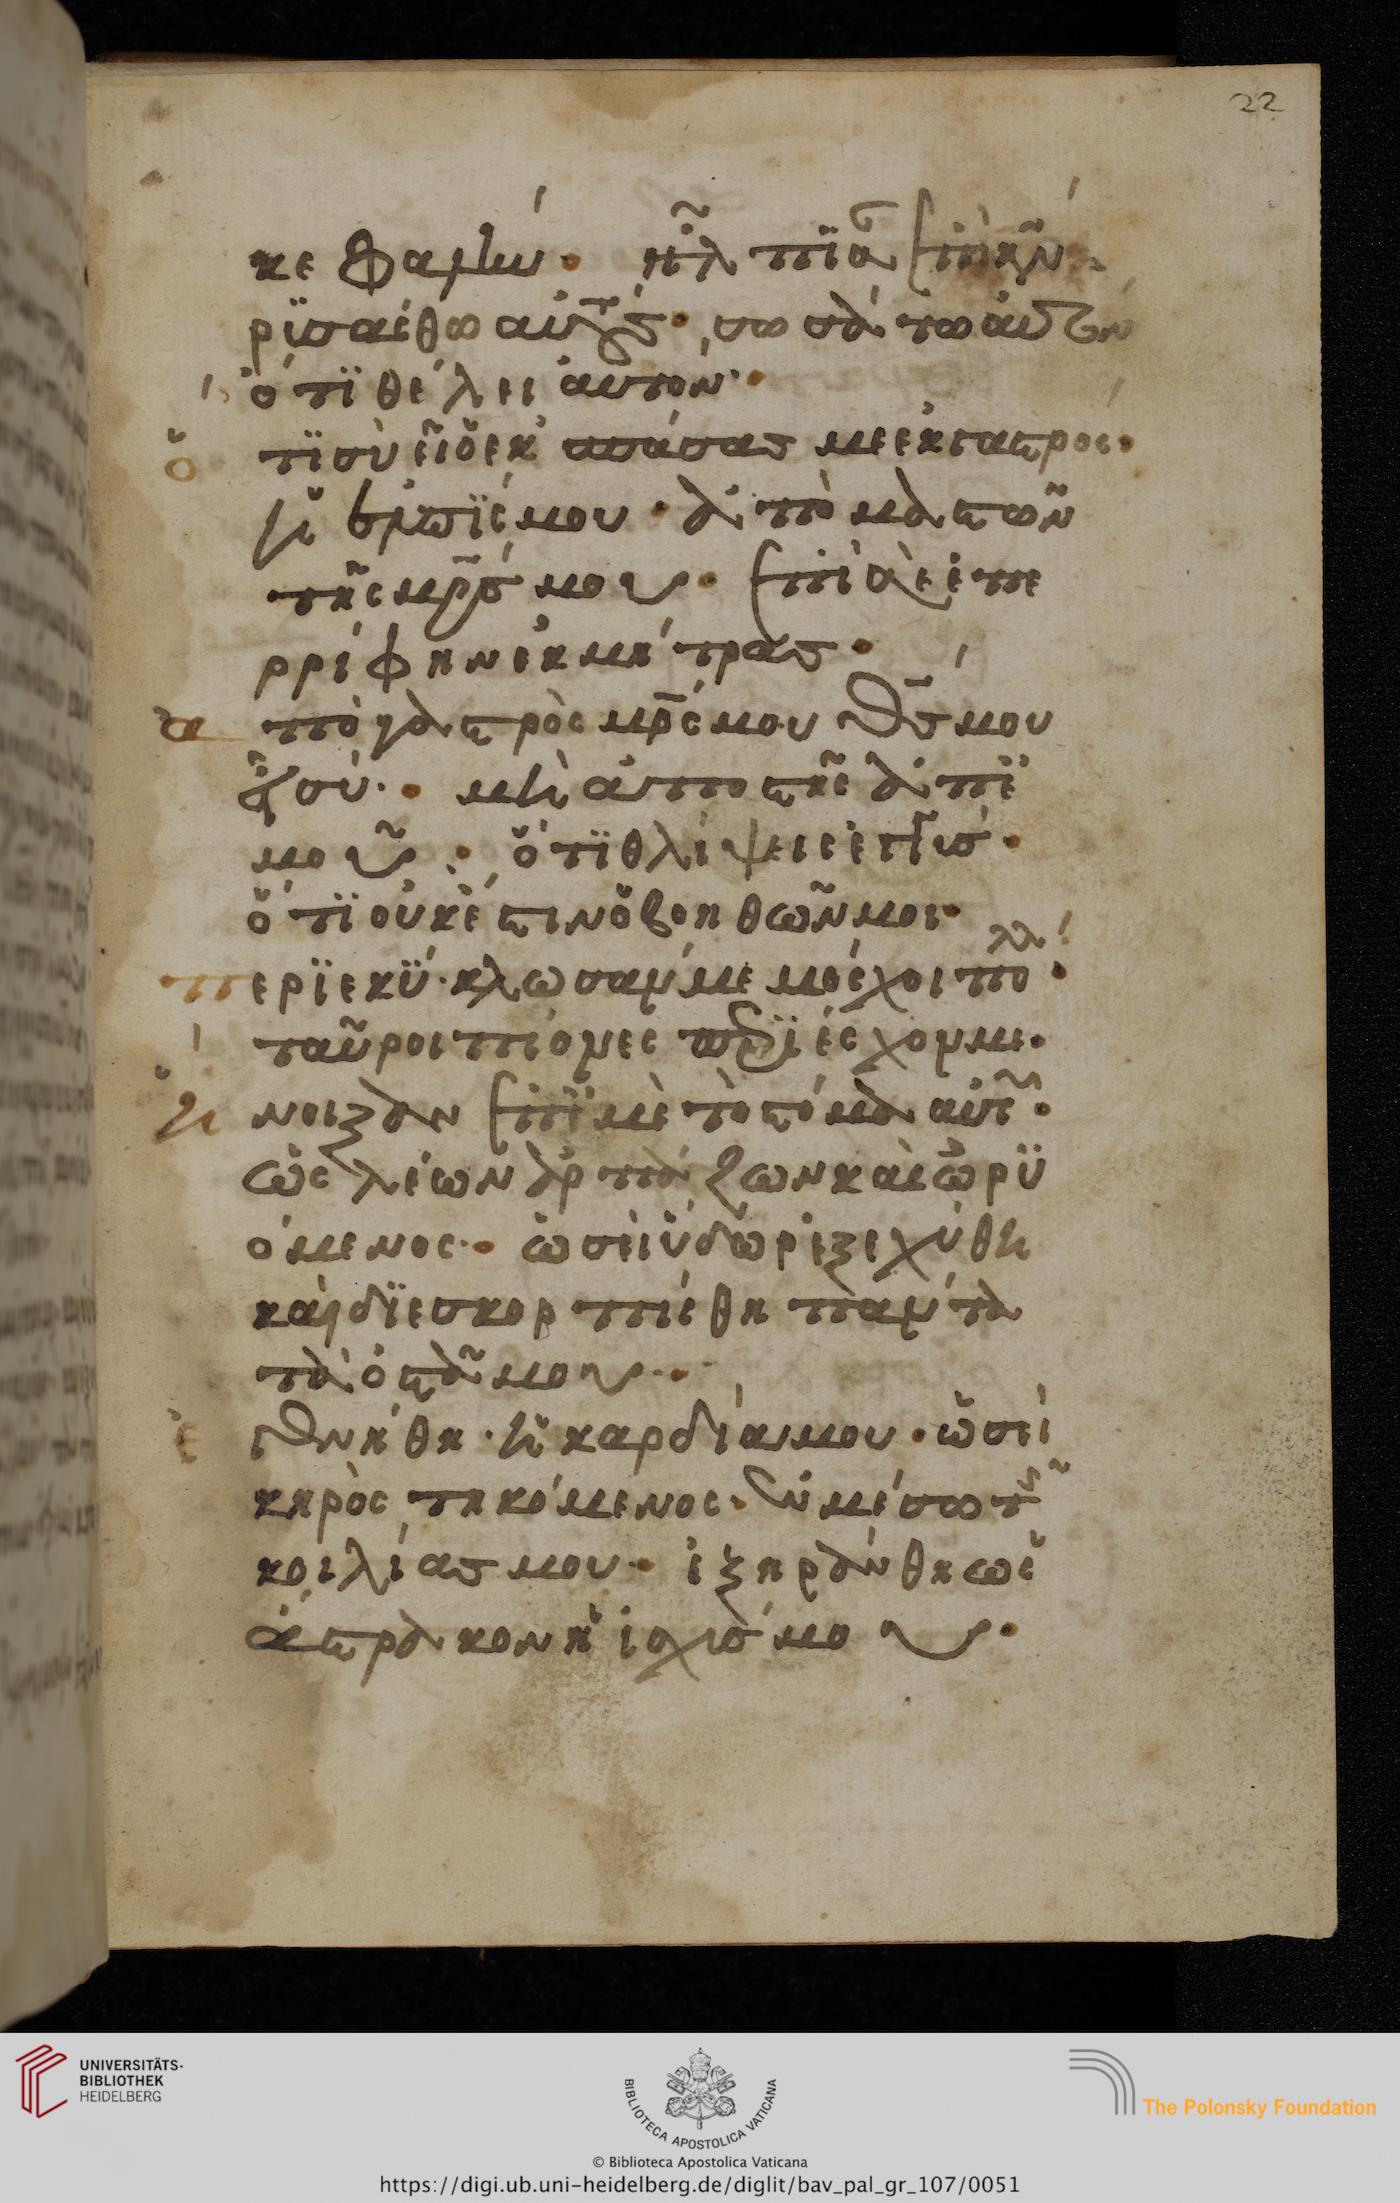 22
κεφαλήν· ἤλπισεν ἐπὶ κν
ρϊσάσθω αὐτόν· σωσάτω αὐτὸν
ὅτϊ θέλει αὐτόν·
ὅτϊ σὺ εἶ ὁ ἐκσπάσας με ἐκ γαστρος·
ἡ ἐλπίς μου· ἀπὸ μαστῶν
τῆς μρς μου· ἐπὶ σὲ ἐπε
ρρίφην ἐκ μήτρας·
ἀπὸ γαστρὸς μρς μου θς μου
εἶ σύ· μὴ ἀποστῆς ἀπ' ἐ
μοῦ· ὅτϊ θλίψεις ἐγγύς·
ὅτϊ οὐκ ἔστιν ὁ βοηθῶν μοι·
περϊεκύκλωσάν με μόσχοι πολλοί·
ταῦροι πίονες περϊέσχον με·
ἤνοιξαν ἐπ' ἐμὲ τὸ στόμα αὐτῶν·
ὡς λέων ἁρπάζων καὶ ὠρϋ
όμενος· ὡσεὶ ὕδωρ ἐξεχύθη
καὶ δϊεσκορπίσθη πάντα
τὰ ὀστᾶ μου·
ἐγενήθη ἡ καρδία μου ὡσεὶ
κηρὸς τηκόμενος ἐν μέσω τῆς
κοιλίας μου· ἐξηράνθη ὡς
ὄστρακον ἡ ἰσχύς μου·
UNIVERSITÄTS-
BIBLIOTHEK
HEIDELBERG
BIBLIOTECA APOSTOLICA VATICANA
The Polonsky Foundation
© Biblioteca Apostolica Vaticana
https://digi.ub.uni-heidelberg.de/diglit/bav_pal_gr_107/0051